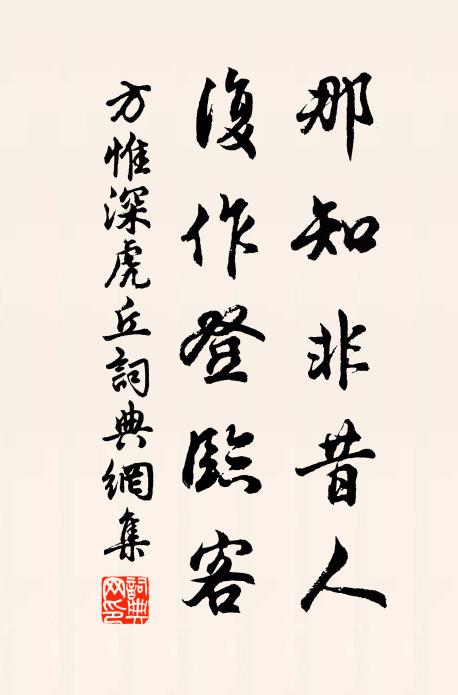 那知非昔人
復作登臨客
方惟深虎丘詞典網集
詞典網印